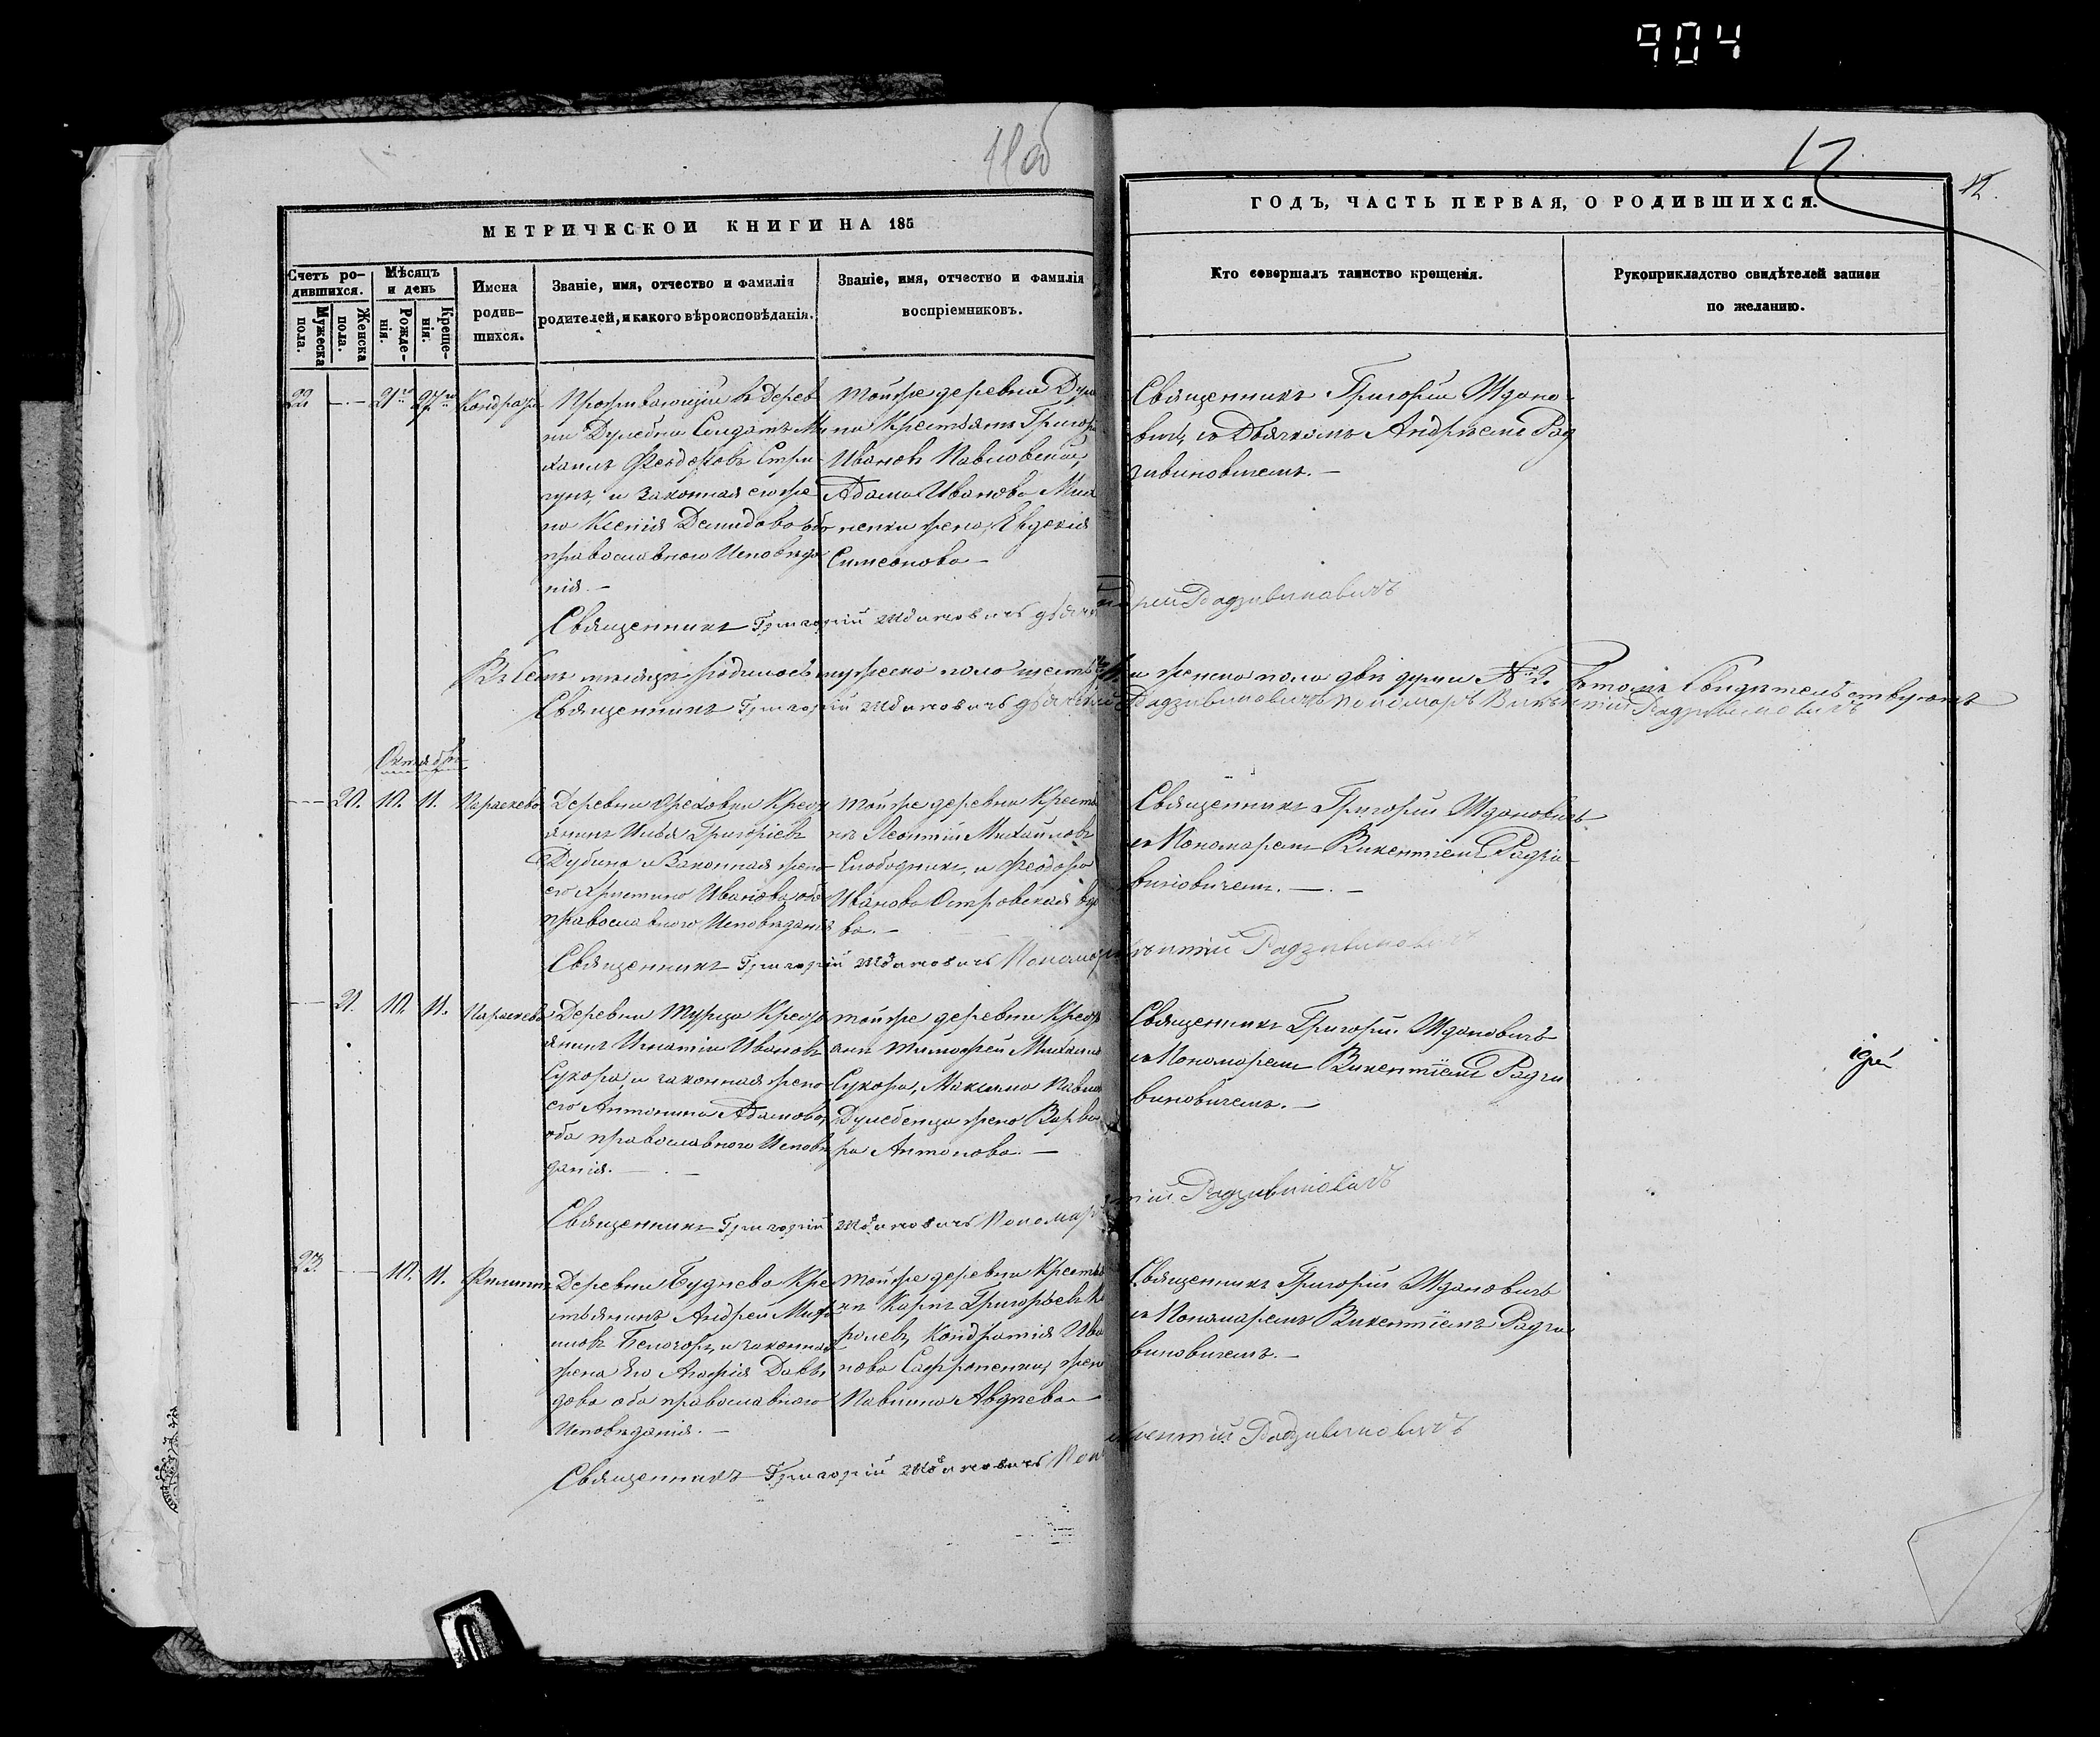 904
11об
17
12.
МЕТРИЧЕСКОЙ КНИГИ НА 185
ГОДЪ, ЧАСТЬ ПЕРВАЯ, О РОДИВШИХСЯ.
Счетъ ро-
дившихся.
Мужеска
пола.
Женска
пола.
Мѣсяцъ
и день
Рожде-
нія.
Креще-
нія.
Имена
родив-
шихся.
Званіе, имя, отчество и фамилія
родителей, и какого вѣроисповѣданія.
Званіе, имя, отчество и фамилія
воспріемниковъ.
Кто совершалъ таинство крещенія.
Рукоприкладство свидѣтелей записи
по желанію.
22 21го 27го
Проживающій въ дерев
ни Дулебни Солдатъ Ми
хаилъ Феодоровъ Стри-
гунъ, и законная его же
на Ксенія Демидова оба
православнаго Исповѣда
нія.—
Тойже деревни Дул
ни Крестьян. Григорі
Ивановъ Павловскій,
Адама Иванова Мих
ненки жена, Евдокія
Симеонова—
Священникъ Григорій Ждано-
вичъ, съ Дьячкомъ Андреемъ Рад
зивиновичемъ.—
Священникъ Григорій Ждановичъ дьячк Радзивиновичъ
Въ Семъ мѣсяцѣ родилось мужеска пола шесть и женска пола двѣ души № 2. въ томъ Свидетельствуютъ
Священникъ Григорій Ждановичъ Радзивиновичъ Пономаръ Викентій Радзивиновичъ
Октябрь
20. 10. 11. Параскева
Деревни Ореховки Крест
янинъ Илья Григоріевъ
Дубина и Законная жена
его Христина Иванова, оба
православнаго Исповѣданія
Тойже деревни Кресть
нъ Леонтій Михайловъ
Слободникъ, и Феодора
Иванова Островская вдо
ва.—
Священникъ Григорій Ждановичъ
съ Пономаремъ Викентіемъ Радзи-
виновичемъ.—
Священникъ Григорій Ждановичъ Пономар нтій Радзивиновичъ
21. 10. 11. Параскева
Деревни Турца Крест
янинъ Игнатій Ивановъ
Сухора, и законная жена
его Антонина Адамова,
оба православнаго Исповѣ
данія.—
тойже деревни Крест
анъ Тимофей Михаило
Сухора, Максима Павло
Дулебенца жена Варва
ра Антонова.—
Священникъ Григорій Ждановичъ
съ Пономаремъ Викентіемъ Радзи
виновичемъ.—
Священникъ Григорій Ждановичъ Пономар тій Радзивиновичъ
23. 10. 11. Филиппъ
Деревни Буднева Кре
стьянинъ Андрей Миха
иловъ Белогоръ, и законная
жена Его Агафія Давы
дова оба православнаго
Исповѣданія.—
Тойже деревни Кресть
нъ Карпъ Григорьевъ Ко
ролевъ, Кондратія Ива
нова Сафроненки, жена
Павлина Авдѣева—
Священникъ Григорій Ждановичъ
съ Пономаремъ Викентіемъ Радзи
виновичемъ.—
Священникъ Григорій Ждановичъ Пон ентій Радзивиновичъ